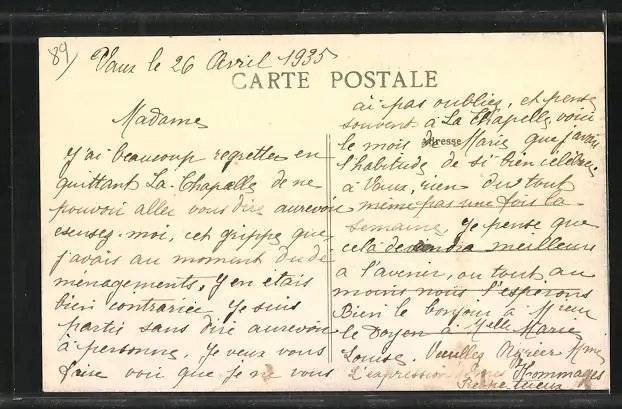 89)
Vaux le 26 Avril 1935
CARTE POSTALE
Madame
J'ai beaucoup regretter en
quittant La Chapelle de ne
pouvoir aller vous dire aurevoir
excusez-moi, cet grippe que
j'avais au moment du dé
ménagements, j'en étais
bien contrariée je suis
partie sans dire aurevoir
à personne, je veux vous
faire voir que je ne vous
ai pas oubliez, et pense
souvent à La Chapelle, voici
le mois de Marie que j'avais
Adresse
l'habitude de si bien célébrer
à Vaux, rien du tout
même pas une fois la
semaine, je pense que
cela deviendra meilleure
à l'avenir, ou tout au
moins nous l'esperons
Bien le bonjour à Mr
le Doyen à Melle Marie
Louise. Veuillez Mme
L'expression Hommages
Respectueux